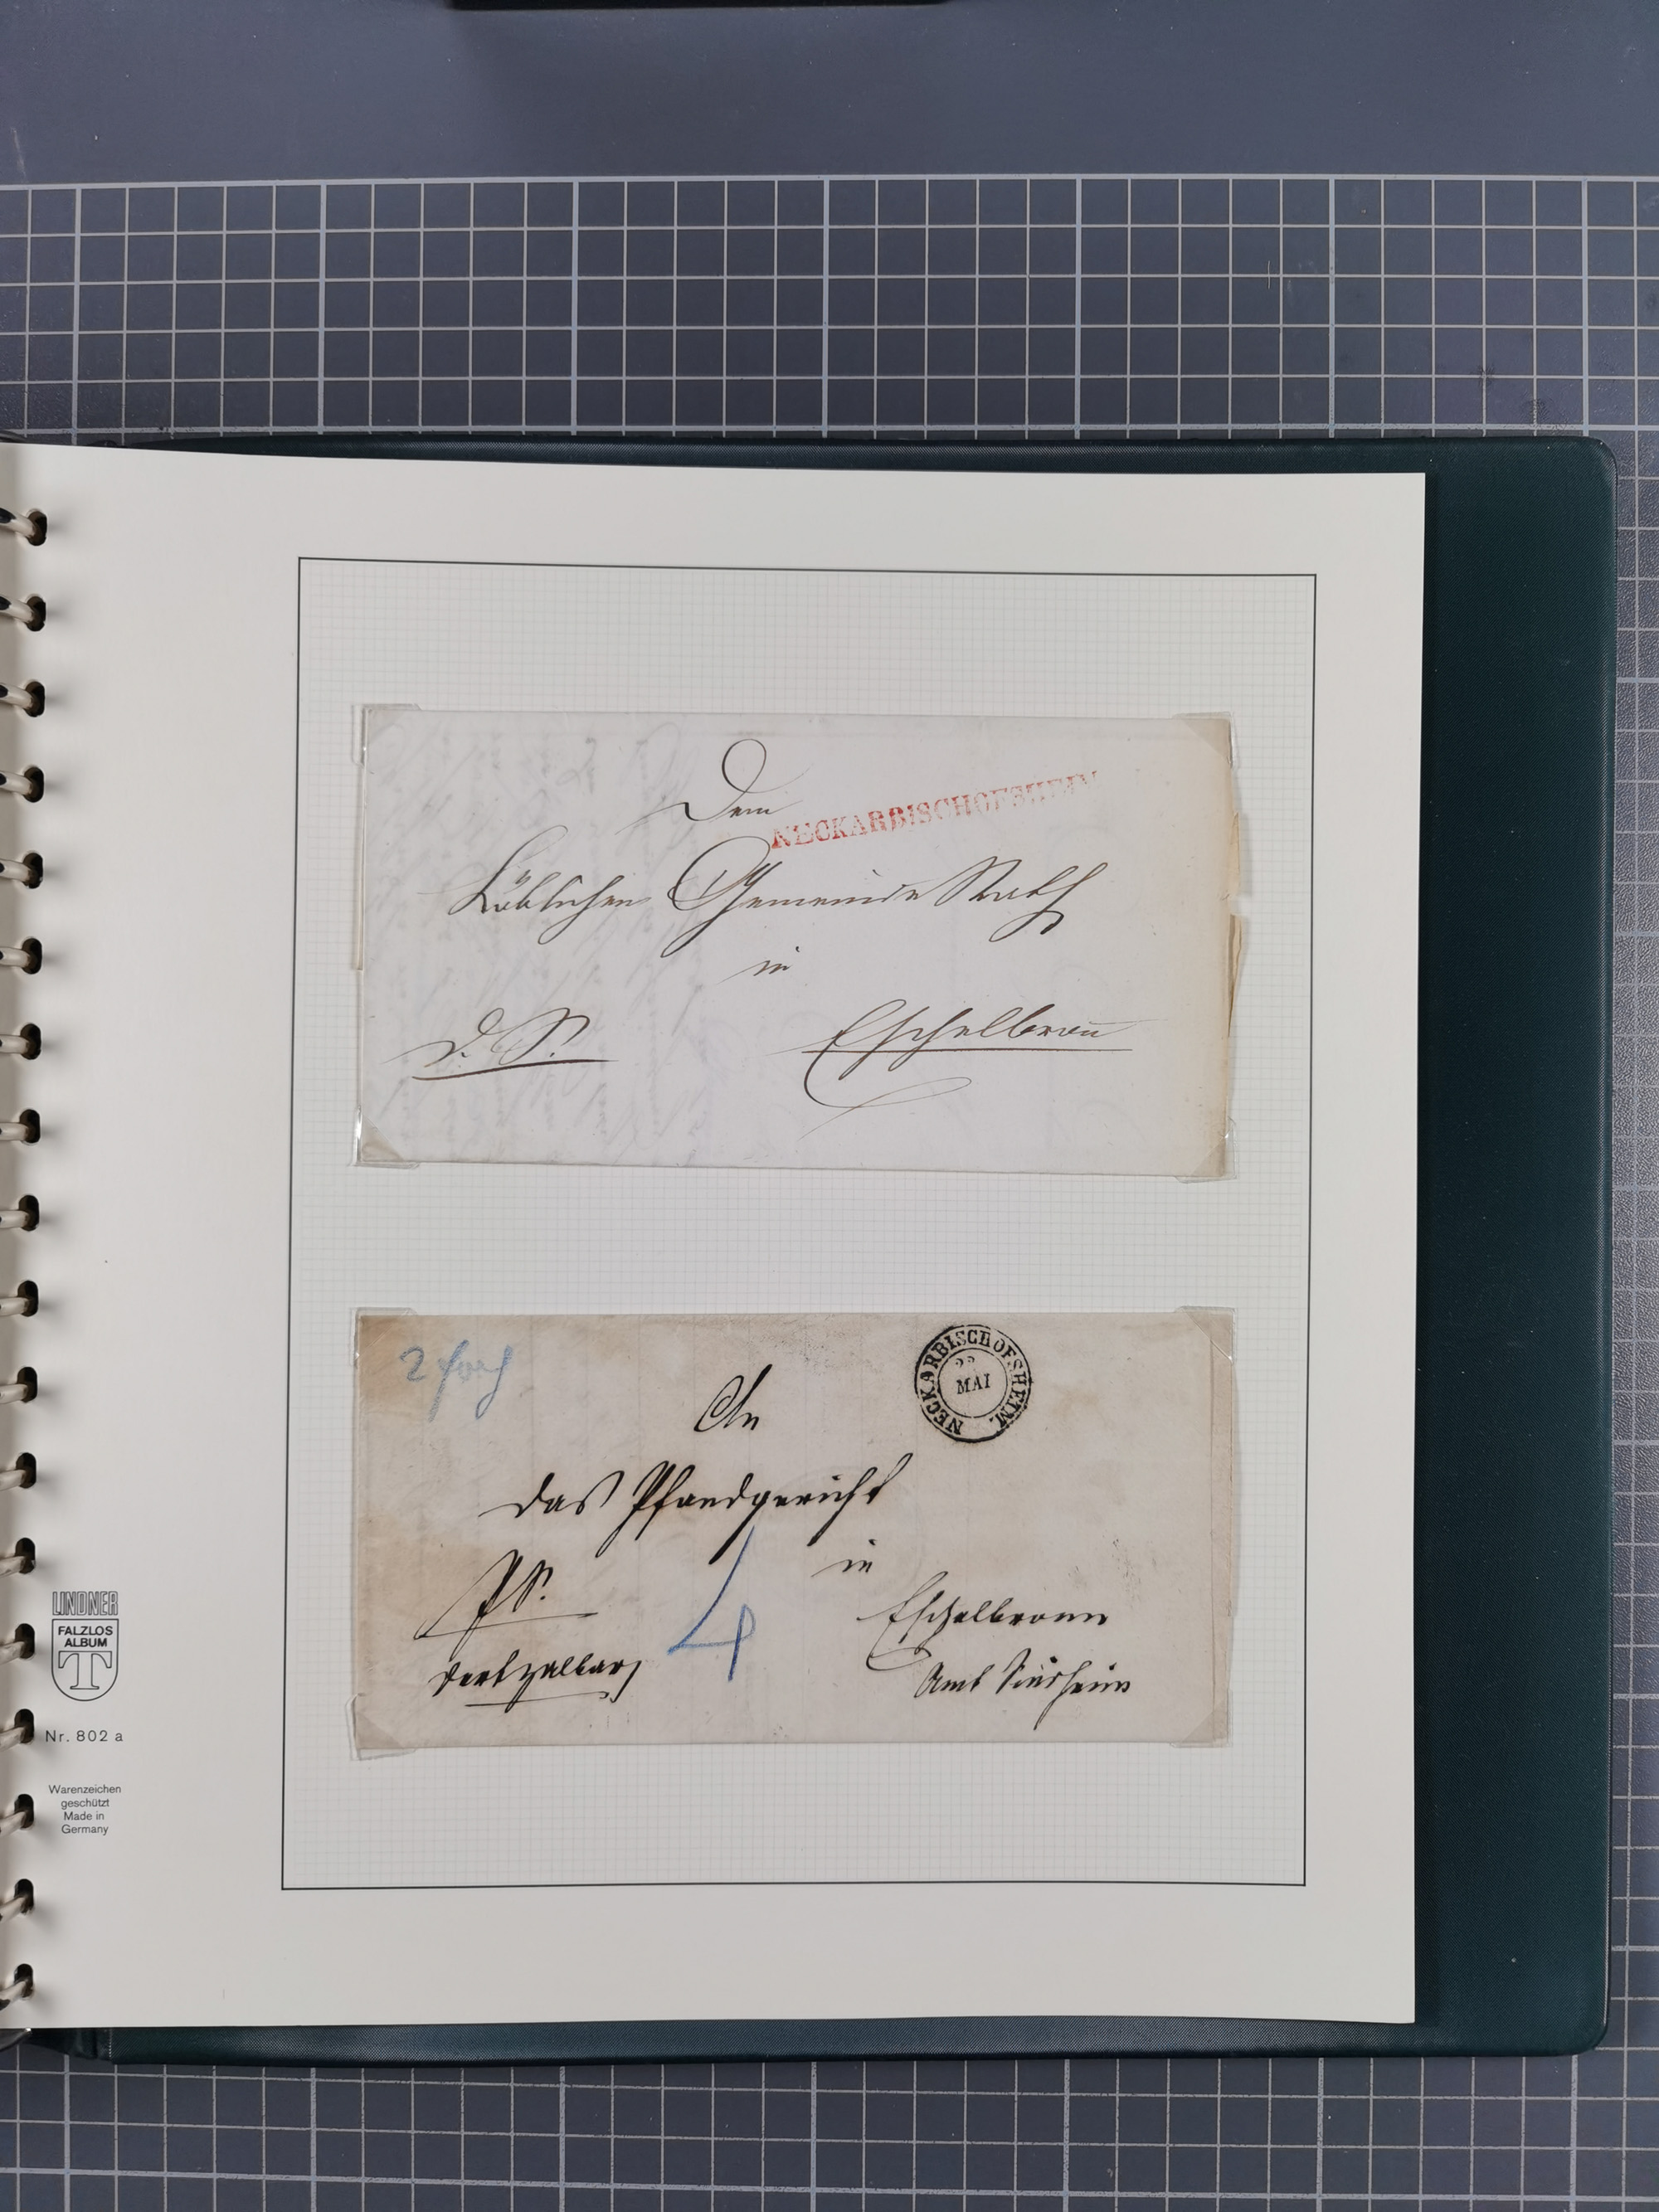 Dem
NECKARBISCHOFSHEIM
Löblichen Gemeinde Rath
in
D. S.
Eschelbroñ
NECKARBISCHOFSHEIM.
22
MAI
2
An
das Pfandgericht
in
P. S.
4
Eschelbronn
Amt Sinsheim
LINDNER
FALZLOS
ALBUM
T
Nr. 802 a
Warenzeichen
geschützt
Made in
Germany